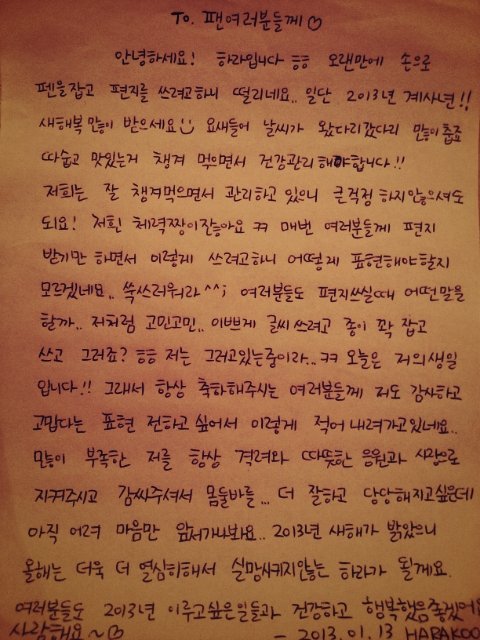 To. 팬여러분들께♡
안녕하세요! 하라입니다ㅎㅎ 오랜만에 손으로
펜을잡고 편지를 쓰려고하니 떨리네요.. 일단 2013년 계사년!!
새해복 많이 받으세요 요새들어 날씨가 왔다리갔다리 많이춥죠
따숩고 맛있는거 챙겨 먹으면서 건강관리해야합니다!!
저희는 잘 챙겨먹으면서 관리하고 있으니 큰걱정 하지않으셔도
되요! 저흰 체력짱이잖아요 ㅋㅋ 매번 여러분들께 편지
받기만 하면서 이렇게 쓰려고하니 어떻게 표현해야할지
모르겠네요.. 쑥쓰러워라^^; 여러분들도 편지쓰실때 어떤말을
할까.. 저처럼 고민고민.. 이쁘게 글씨쓰려고 종이 꽉 잡고
쓰고 그러죠? ㅎㅎ 저는 그러고있는중이라..ㅋㅋ 오늘은 저의생일
입니다!! 그래서 항상 축하해주시는 여러분들께 저도 감사하고
고맙다는 표현 전하고싶어서 이렇게 적어내려가고있네요..
많이 부족한 저를 항상 격려와 따뜻한 응원과 사랑으로
지켜주시고 감싸주셔서 몸둘바를... 더 잘하고 당당해지고싶은데
아직 어려 마음만 앞서가나봐요.. 2013년 새해가 밝았으니
올해는 더욱 더 열심히해서 실망시키지않는 하라가 될게요.
여러분들도 2013년 이루고싶은일들과 건강하고 행복했음좋겠어요
사랑해요~♡ - 2013. 01. 13 HARAKOO